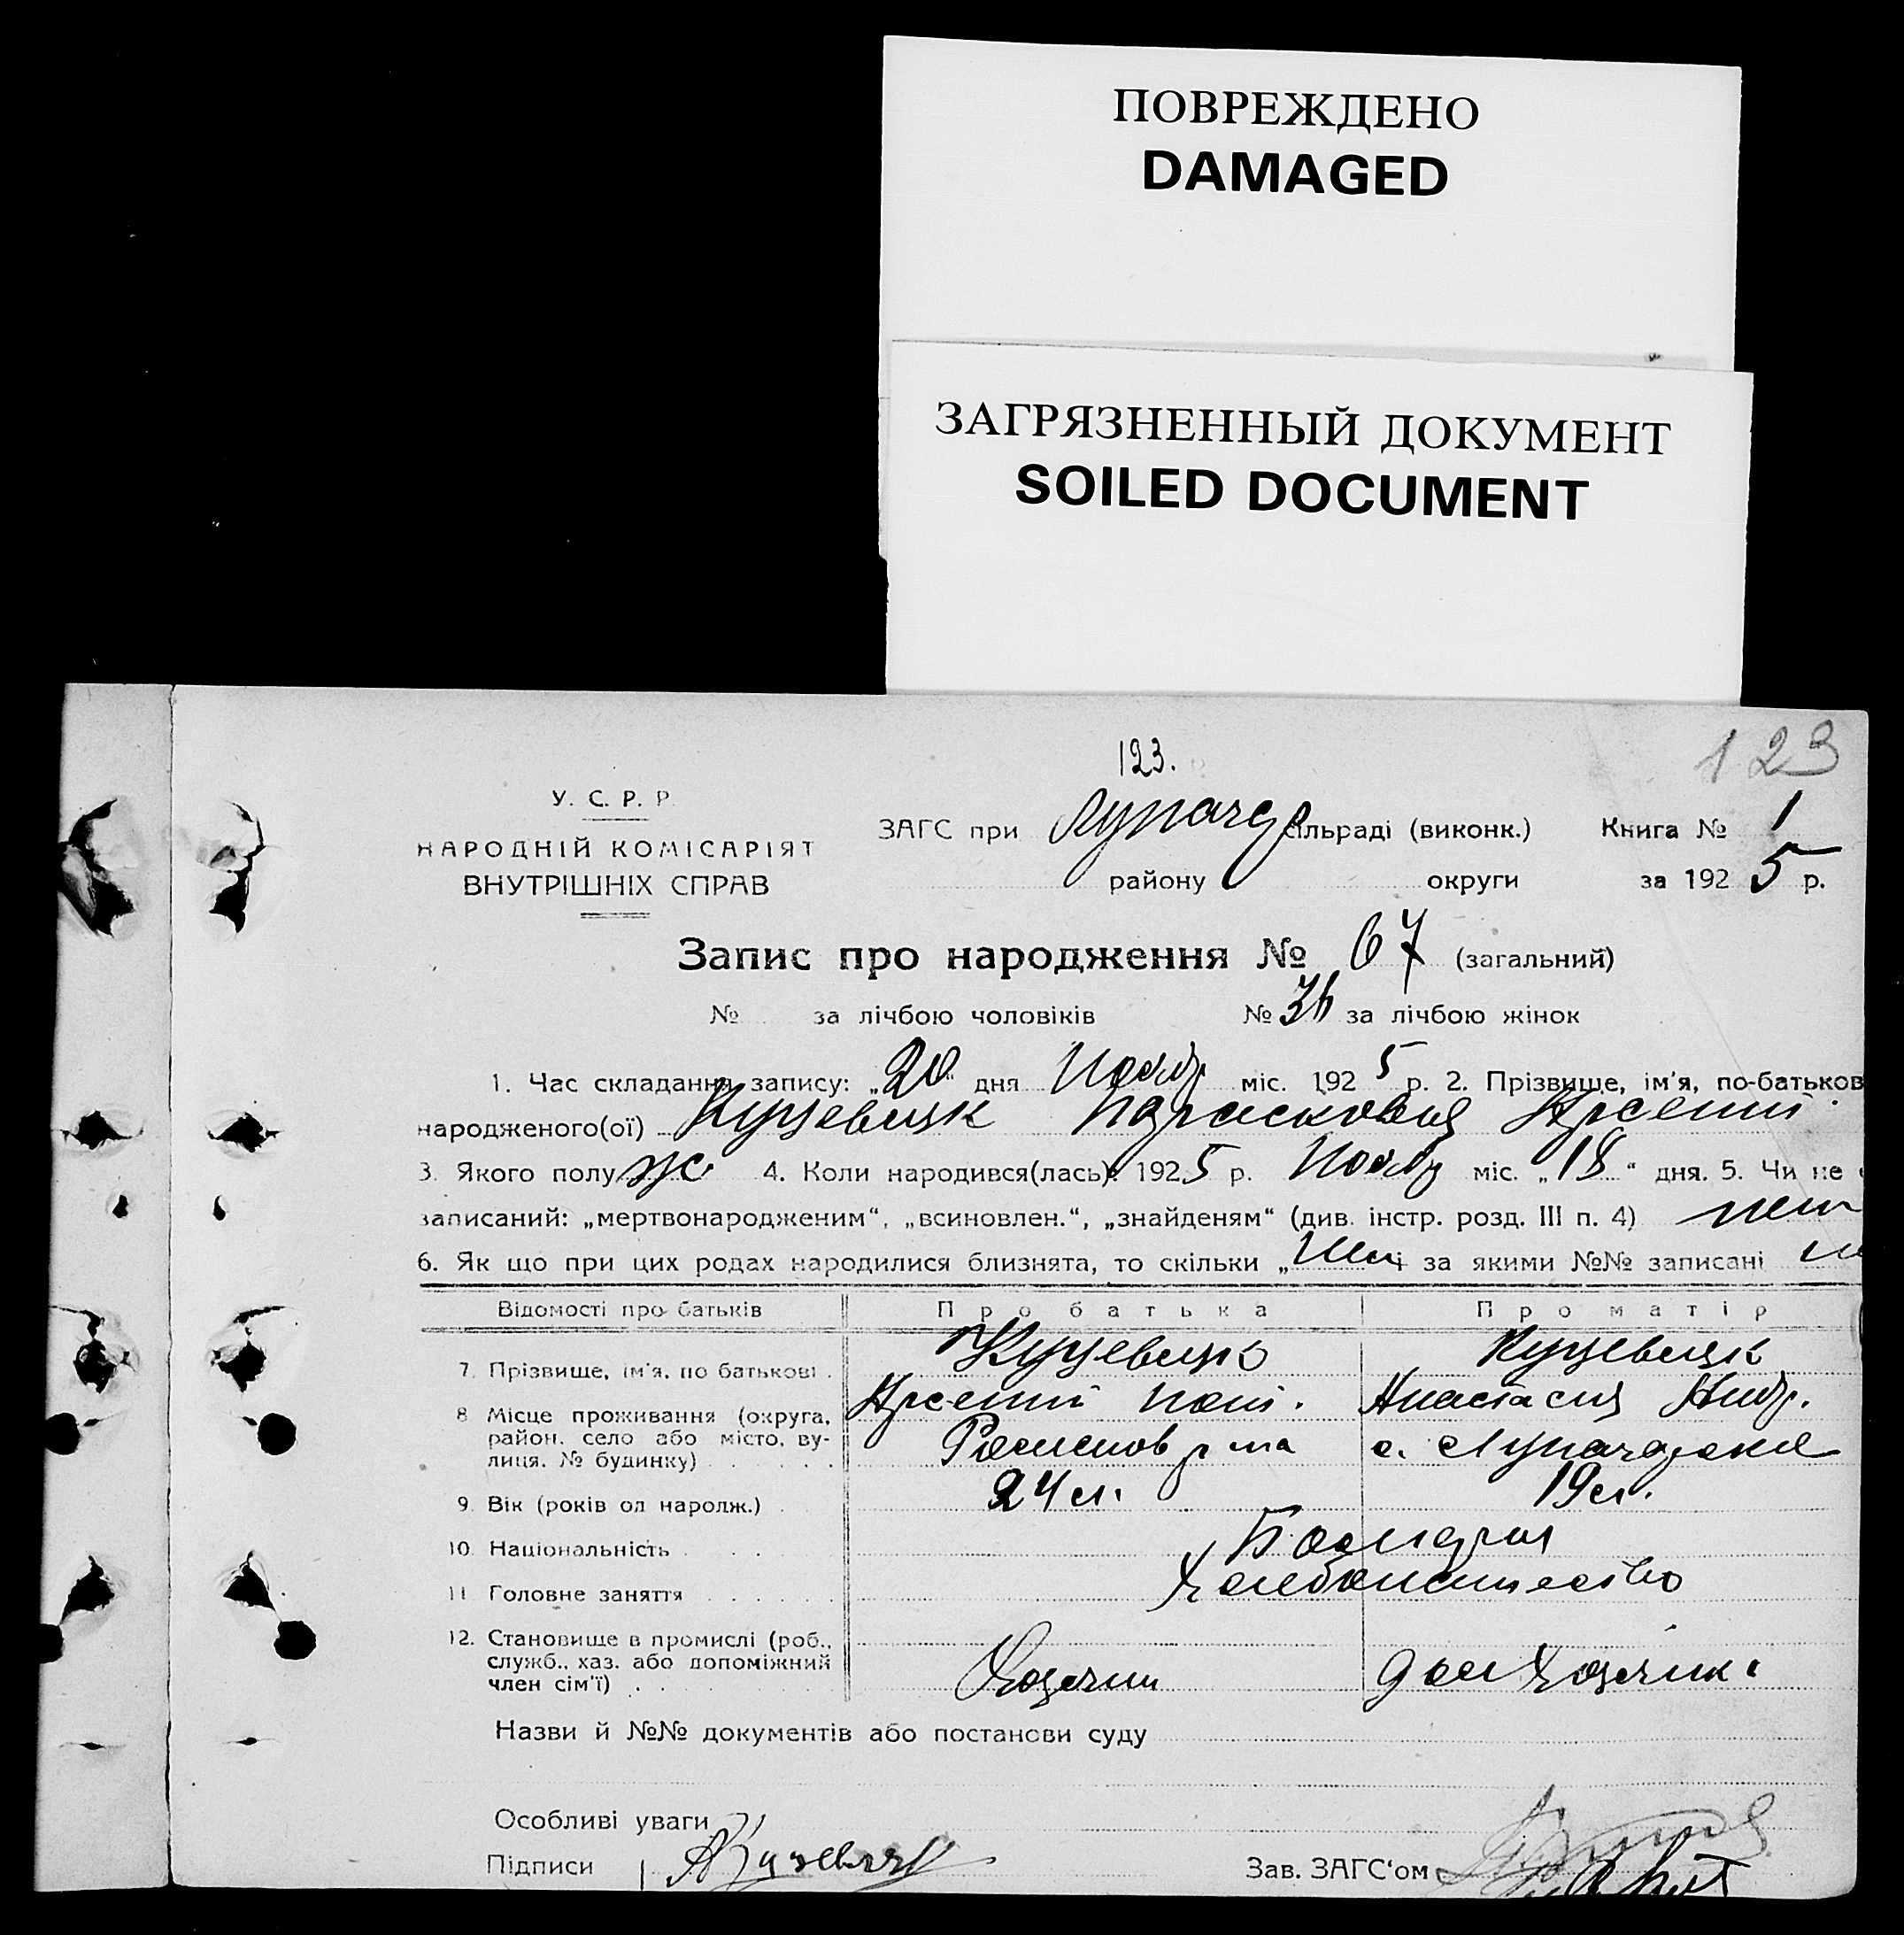 ПОВРЕЖДЕНО
DAMAGED
ЗАГРЯЗНЕННЫЙ ДОКУМЕНТ
SOILED DOCUMENT
123.
123
У. С. Р. Р.
НАРОДНІЙ КОМІСАРІЯТ
ВНУТРІШНІХ СПРАВ
ЗАГС при сільраді (виконк.) Книга № 1
району округи за 1925 р.
Запис про народження № 67 (загальний)
№ за лічбою чоловіків № 36 за лічбою жінок
1. Час складання запису: „20“ дня Нояб. міс. 1925 р. 2. Прізвище, ім'я, по-батьков
народженого(ої) Парасковия Арсент.
3. Якого полу ж. 4. Коли народився(лась): 1925 р. Нояб міс. „18“ дня. 5. Чи не
записаний: „мертвонародженим“, „всиновлен.“, „знайденям“ (див. інстр. розд. III п. 4) нет
6. Як що при цих родах народилися близнята, то скільки „ і за якими №№ записані
Відомості про батьків Про батька Про матір
7. Прізвище, ім'я, по батькові
Арсентий Анастасия Андр.
8. Місце проживання (округа,
район, село або місто, ву-
лиця, № будинку)
9. Вік (років од народж.) 24 л. 19 л.
10. Національність
11. Головне заняття Хлебопашество
12. Становище в промислі (роб.,
служб., хаз. або допоміжний
член сім'ї) Хозяин дом хозяйк.
Назви й №№ документів або постанови суду
Особливі уваги
Підписи Зав. ЗАГС'ом